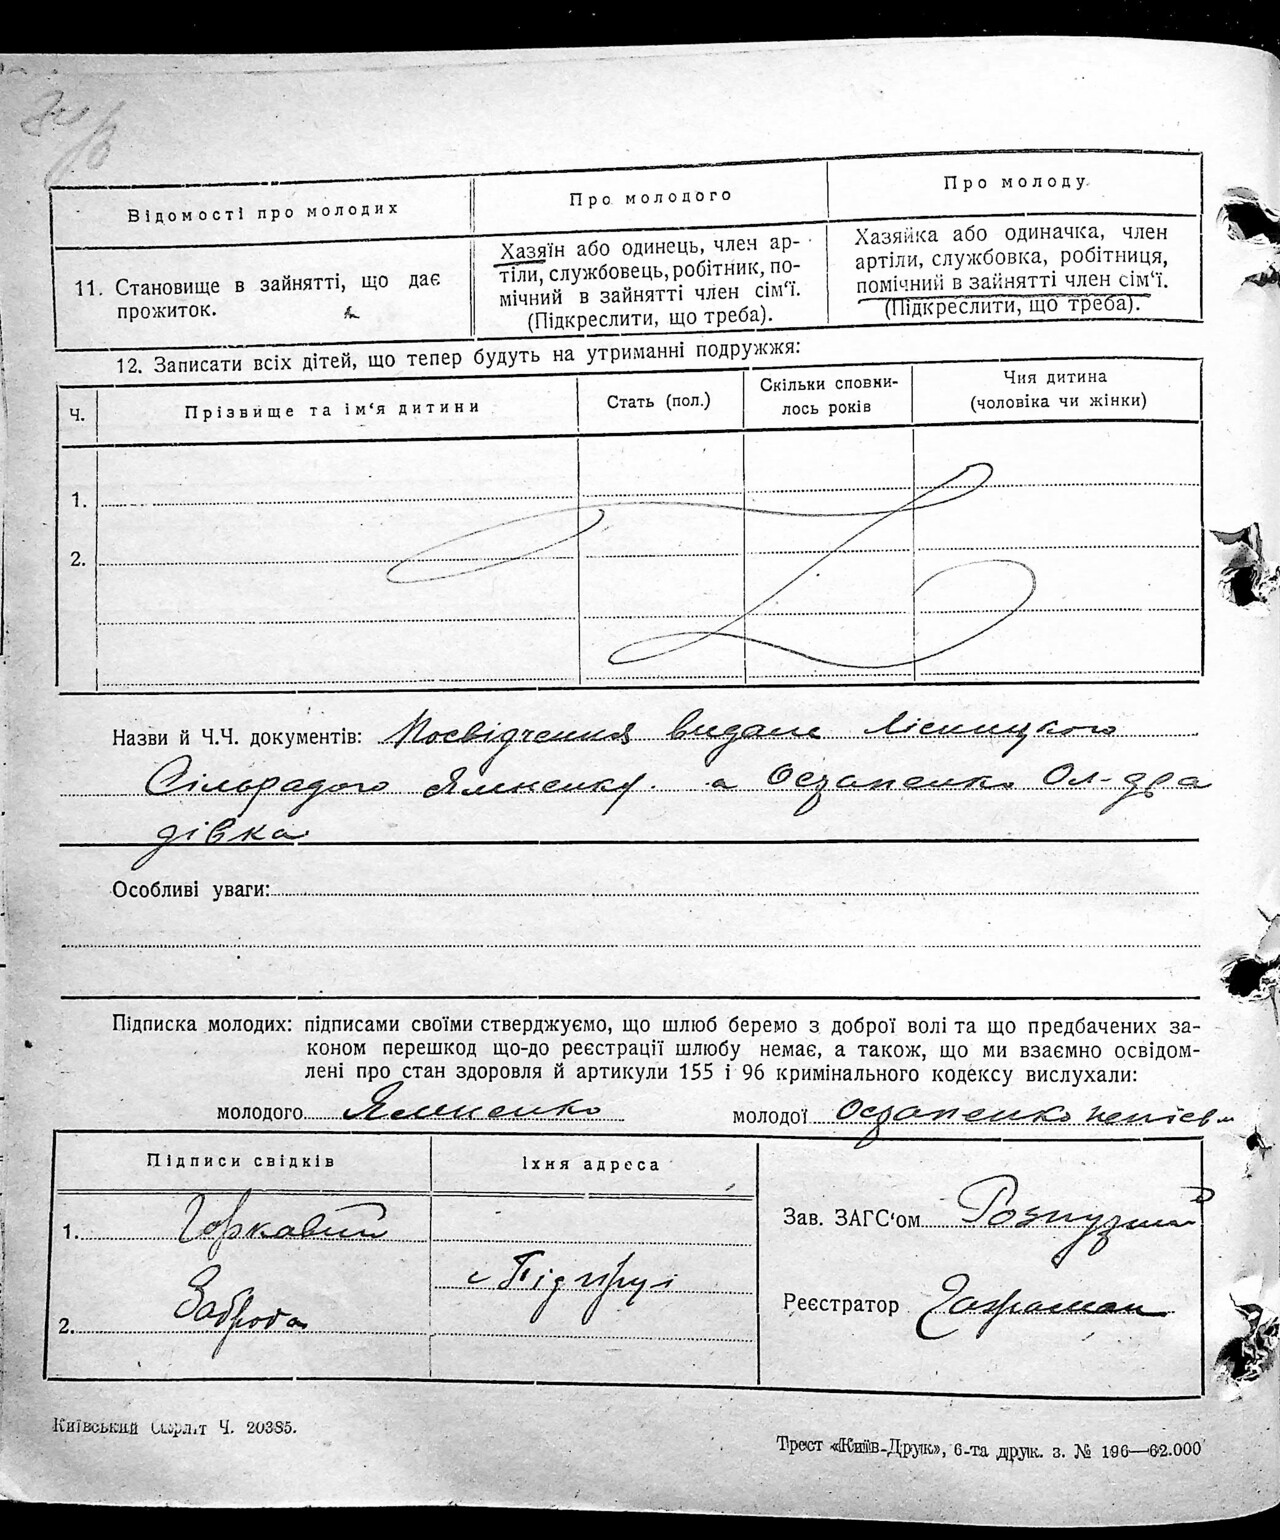 Відомості про молодих
Про молодого
Про молоду
11. Становище в зайнятті, що дає
прожиток.
Хазяїн або одинець, член ар-
тіли, службовець, робітник, по-
мічний в зайнятті член сім'ї.
(Підкреслити, що треба).
Хазяйка або одиначка, член
артіли, службовка, робітниця,
помічний в зайнятті член сім'ї.
(Підкреслити, що треба).
12. Записати всіх дітей, що тепер будуть на утриманні подружжя:
Ч.
Прізвище та ім'я дитини
Стать (пол.)
Скільки сповни-
лось років
Чия дитина
(чоловіка чи жінки)
1.
2.
Назви й Ч.Ч. документів: Посвідчення видане Лісницкого
Сільрадого Ялиенку а Остапенко Ол-дра
дівка
Особливі уваги:
Підписка молодих: підписами своїми стверджуємо, що шлюб беремо з доброї волі та що предбачених за-
коном перешкод що-до реєстрації шлюбу немає, а також, що ми взаємно освідом-
лені про стан здоровля й артикули 155 і 96 кримінального кодексу вислухали:
молодого
молодої Остапенко непісьм
Підписи свідків
Їхня адреса
1.
2. Заброда
с Підгірці
Зав. ЗАГС'ом
Реєстратор
Київський Окрліт Ч. 20385.
Трест «Київ-Друк», 6-та друк. з. № 196—62.000